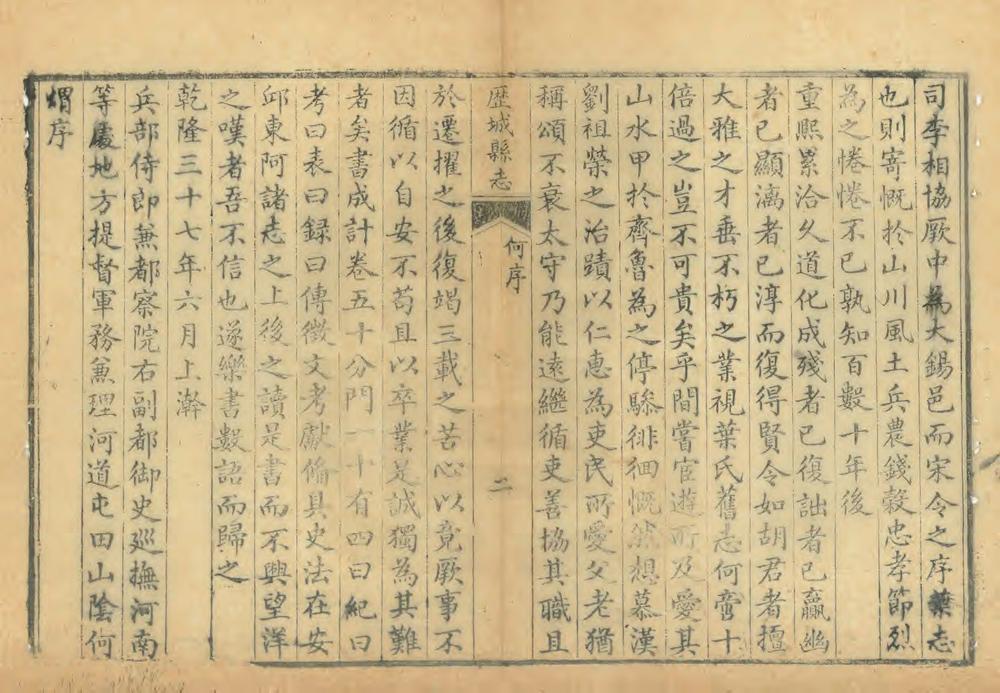 司李相協厥中為大錫邑而宋令之序葉志
也則寄慨扵山川風土兵農錢穀忠孝節烈
為之惓惓不已孰知百數十年後
重熙累洽久道化成殘者已復詘者已贏幽
者已顯漓者已淳而復得賢令如胡君者擅
大雅之才垂不朽之業視葉氏舊志何啻十
倍過之豈不可貴矣乎間嘗宦遊所及愛其
山水甲扵齊魯為之停驂徘徊慨然想慕漢
劉祖榮之治蹟以仁惠為吏民所愛父老猶
稱頌不衰太守乃能遠繼循吏善協其職且
歷城縣志
何序
二
於遷擢之後復竭三載之苦心以竟厥事不
因循以自安不苟且以卒業是誠獨為其難
者矣書成計卷五十分門一十有四曰紀曰
考曰表曰録曰傳徵文考獻偹具史法在安
邱東阿諸志之上後之讀是書而不興望洋
之嘆者吾不信也遂樂書數語而歸之
乾隆三十七年六月上澣
兵部侍郎兼都察院右副都御史廵撫河南
等處地方提督軍務兼理河道屯田山隂何
煟序